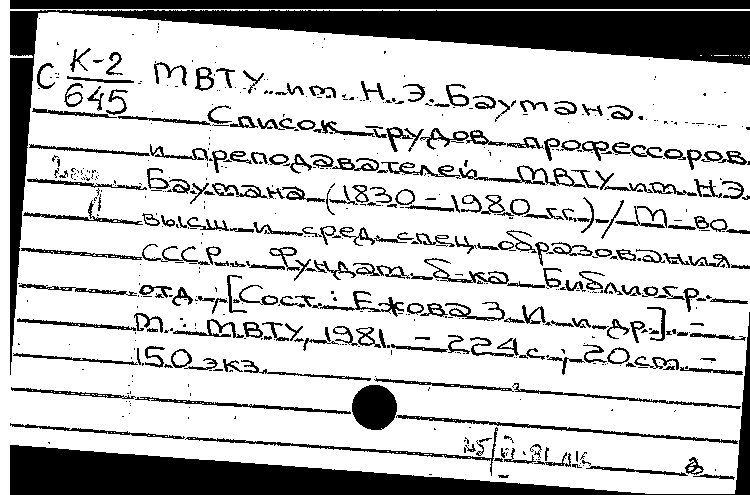 С К-2/645 МВТУ им. Н.Э. Баумана.
Список трудов профессоров
и преподавателей МВТУ им. Н.Э.
Баумана (1830-1980 гг.) / М-во
высш. и сред. спец. образования
СССР. Фундам. б-ка. Библиогр.
отд.; [Сост.: Ежова З.И. и др.]. -
М.: МВТУ, 1981. - 224 с.; 20 см. -
150 экз.